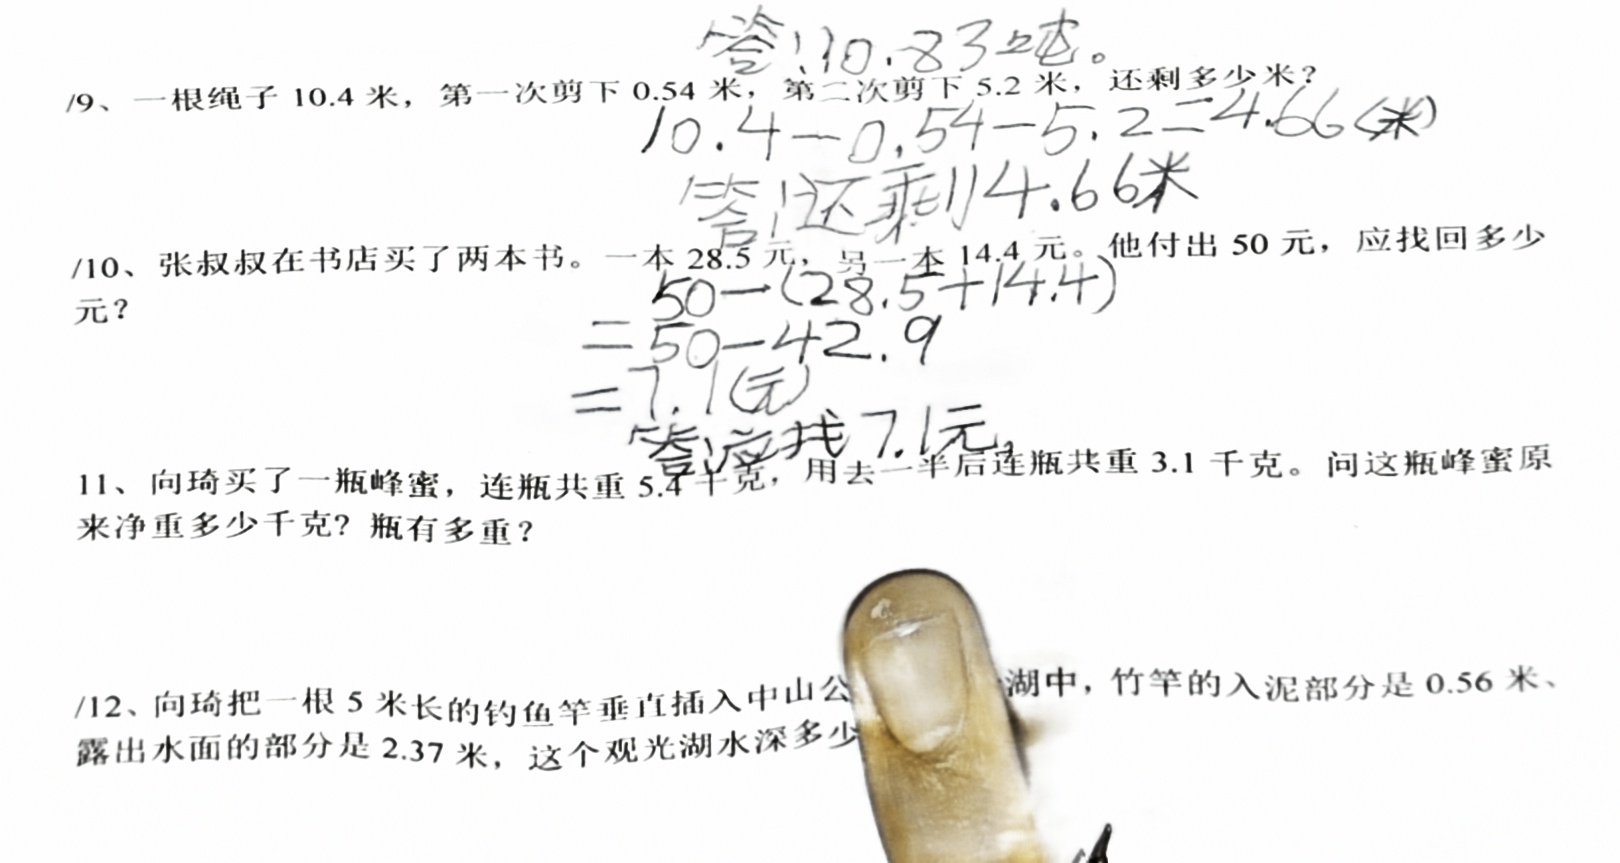 答:10.83吨。
/9、一根绳子 10.4 米，第一次剪下 0.54 米，第二次剪下 5.2 米，还剩多少米？
10.4-0.54-5.2=4.66(米)
答:还剩4.66米
/10、张叔叔在书店买了两本书。一本 28.5 元，另一本 14.4 元。他付出 50 元，应找回多少
元？
50-(28.5+14.4)
=50-42.9
=7.1(元)
答:应找7.1元。
11、向琦买了一瓶蜂蜜，连瓶共重 5.4 千克，用去一半后连瓶共重 3.1 千克。问这瓶蜂蜜原
来净重多少千克？瓶有多重？
/12、向琦把一根 5 米长的钓鱼竿垂直插入中山公 湖中，竹竿的入泥部分是 0.56 米、
露出水面的部分是 2.37 米，这个观光湖水深多少